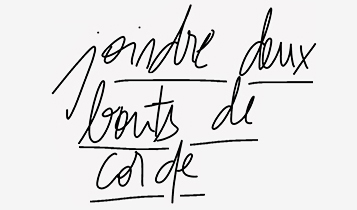 joindre deux
bouts de
corde